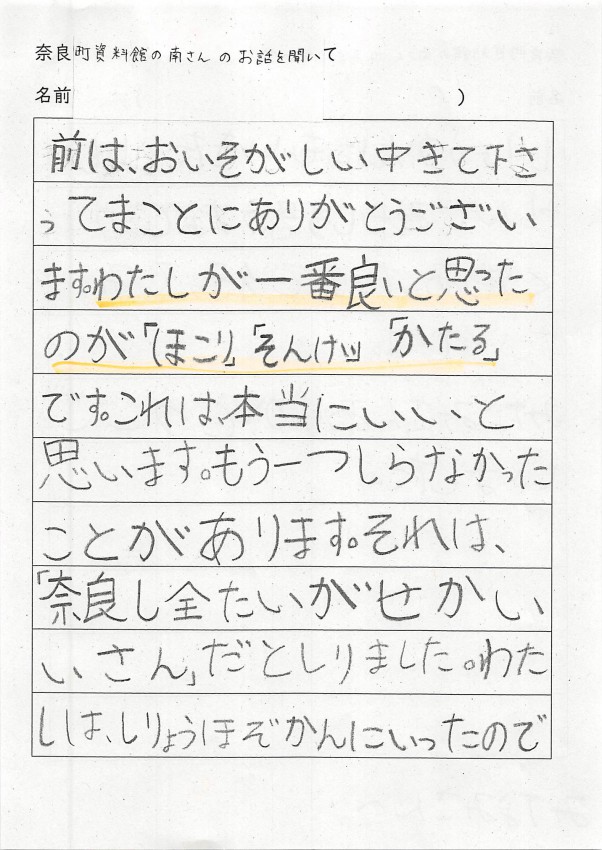 奈良町資料館の南さんのお話を聞いて
名前
)
前は、おいそがしい中きて下さ
ってまことにありがとうござい
ます。わたしが一番良いと思った
のが「ほこり」「そんけい」「かたる」
です。これは、本当にいいと
思います。もう一つしらなかった
ことがあります。それは、
「奈良し全たいがせかい
いさん」だとしりました。わた
しは、しりょうほぞかんにいったので